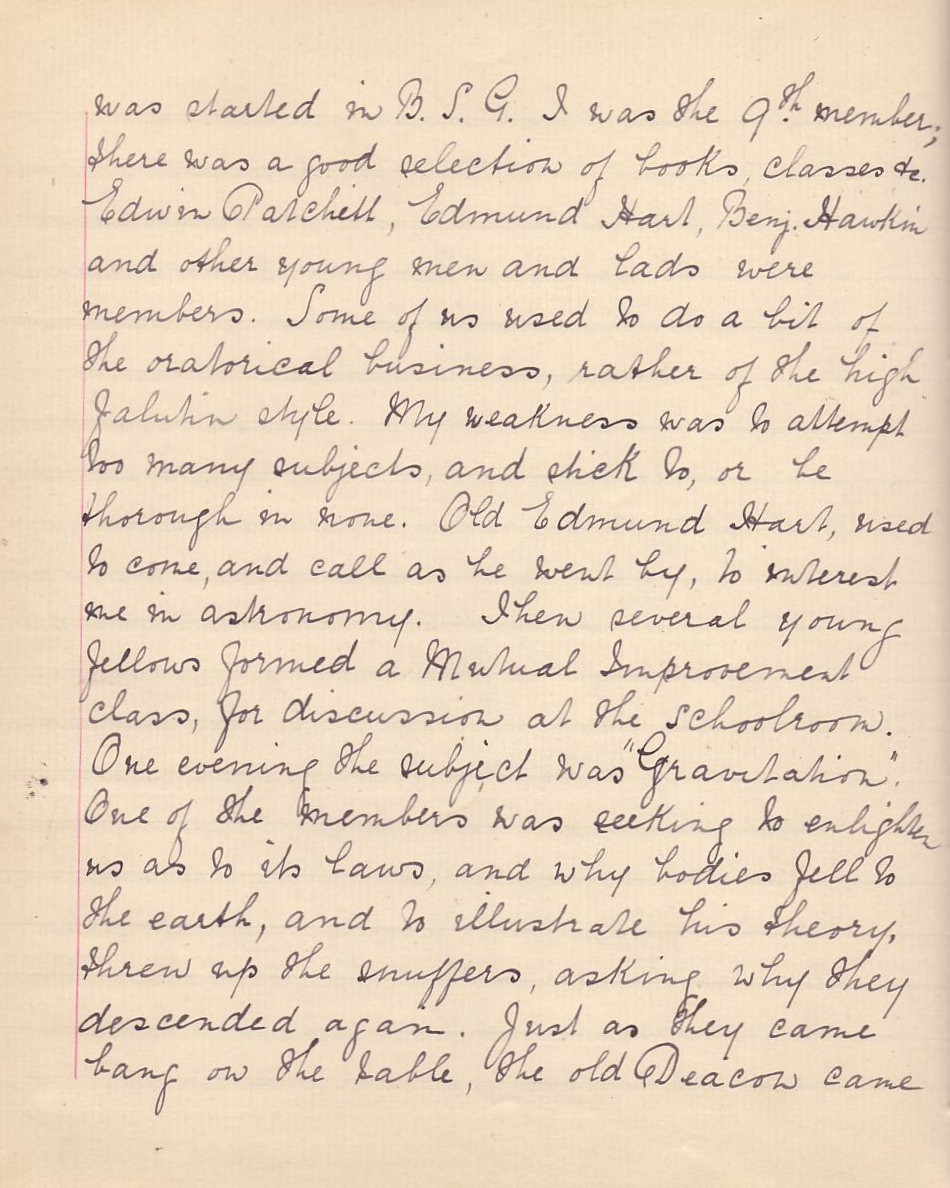 was started in B. S. G. I was the 9th member;
there was a good selection of books, classes &c.
Edwin Patchett, Edmund Hart, Benj. Hawkin
and other young men and lads were
members. Some of us used to do a bit of
the oratorical business, rather of the high
falutin style. My weakness was to attempt
too many subjects, and stick to, or be
thorough in none. Old Edmund Hart, used
to come, and call as he went by, to interest
me in astronomy. Then several young
fellows formed a Mutual Improvement
class, for discussion at the schoolroom.
One evening the subject was "Gravitation".
One of the members was seeking to enlighten
us as to its laws, and why bodies fell to
the earth, and to illustrate his theory,
threw up the snuffers, asking why they
descended again. Just as they came
bang on the table, the old Deacon came